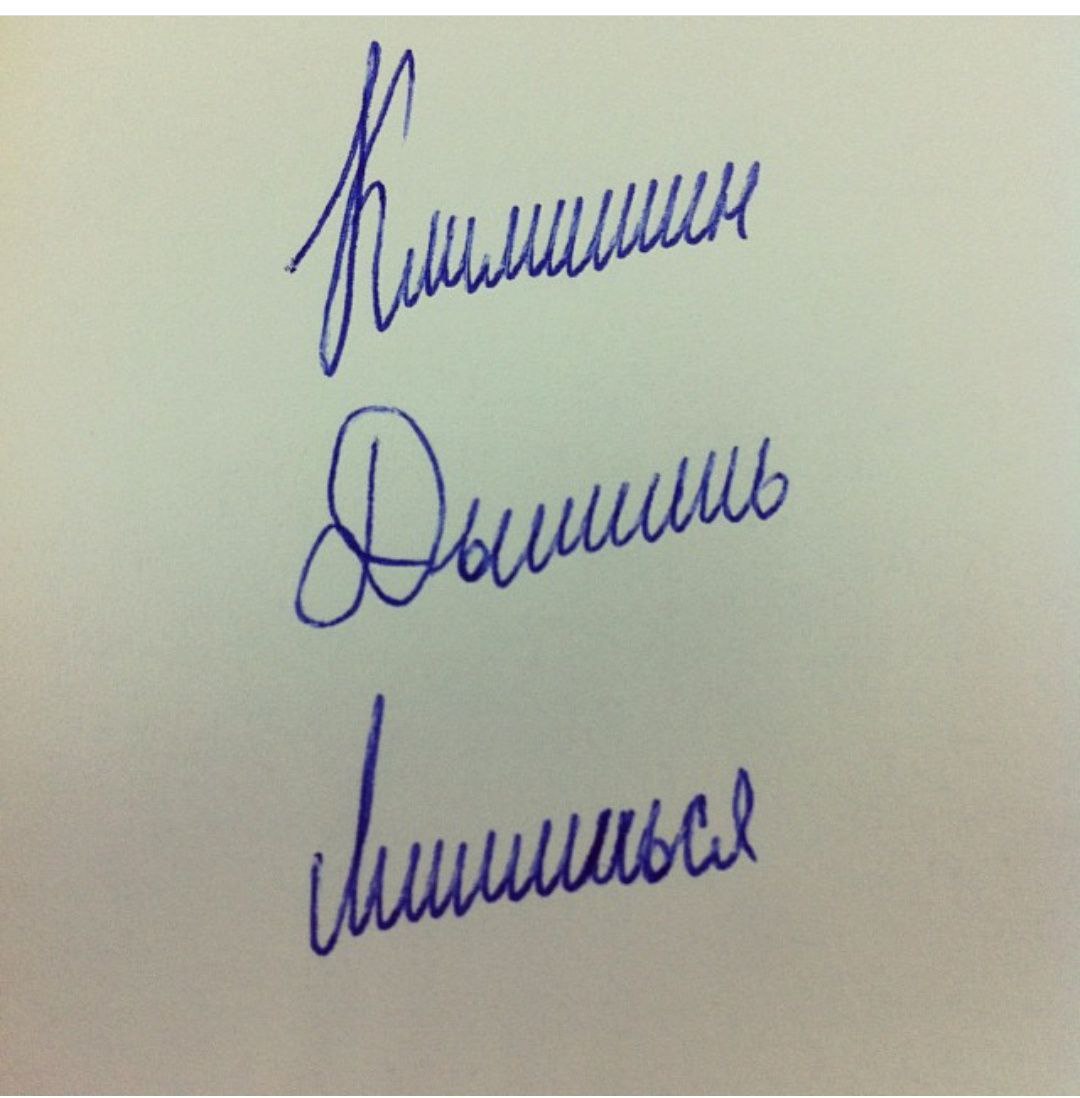 Климишин
Дышишь
Лишишься